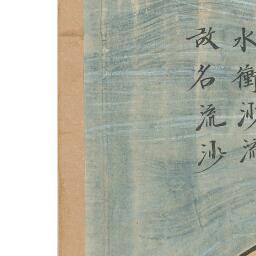 水衝沙流
故名流沙